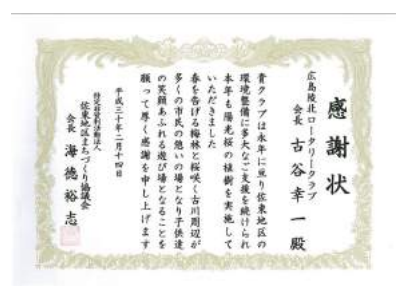 感謝状
広島陵北ロータリークラブ
会長 古谷幸一殿
貴クラブは永年に亘り佐東地区の
環境整備に多大なご支援を続けられ
本年も陽光桜の植樹を実施して
いただきました
春を告げる梅林と桜咲く古川周辺が
多くの市民の憩いの場となり子供達
の笑顔あふれる遊び場となることを
願って厚く感謝を申し上げます
平成三十年二月十四日
特定非営利活動法人
佐東地区まちづくり協議会
会長 海徳裕志